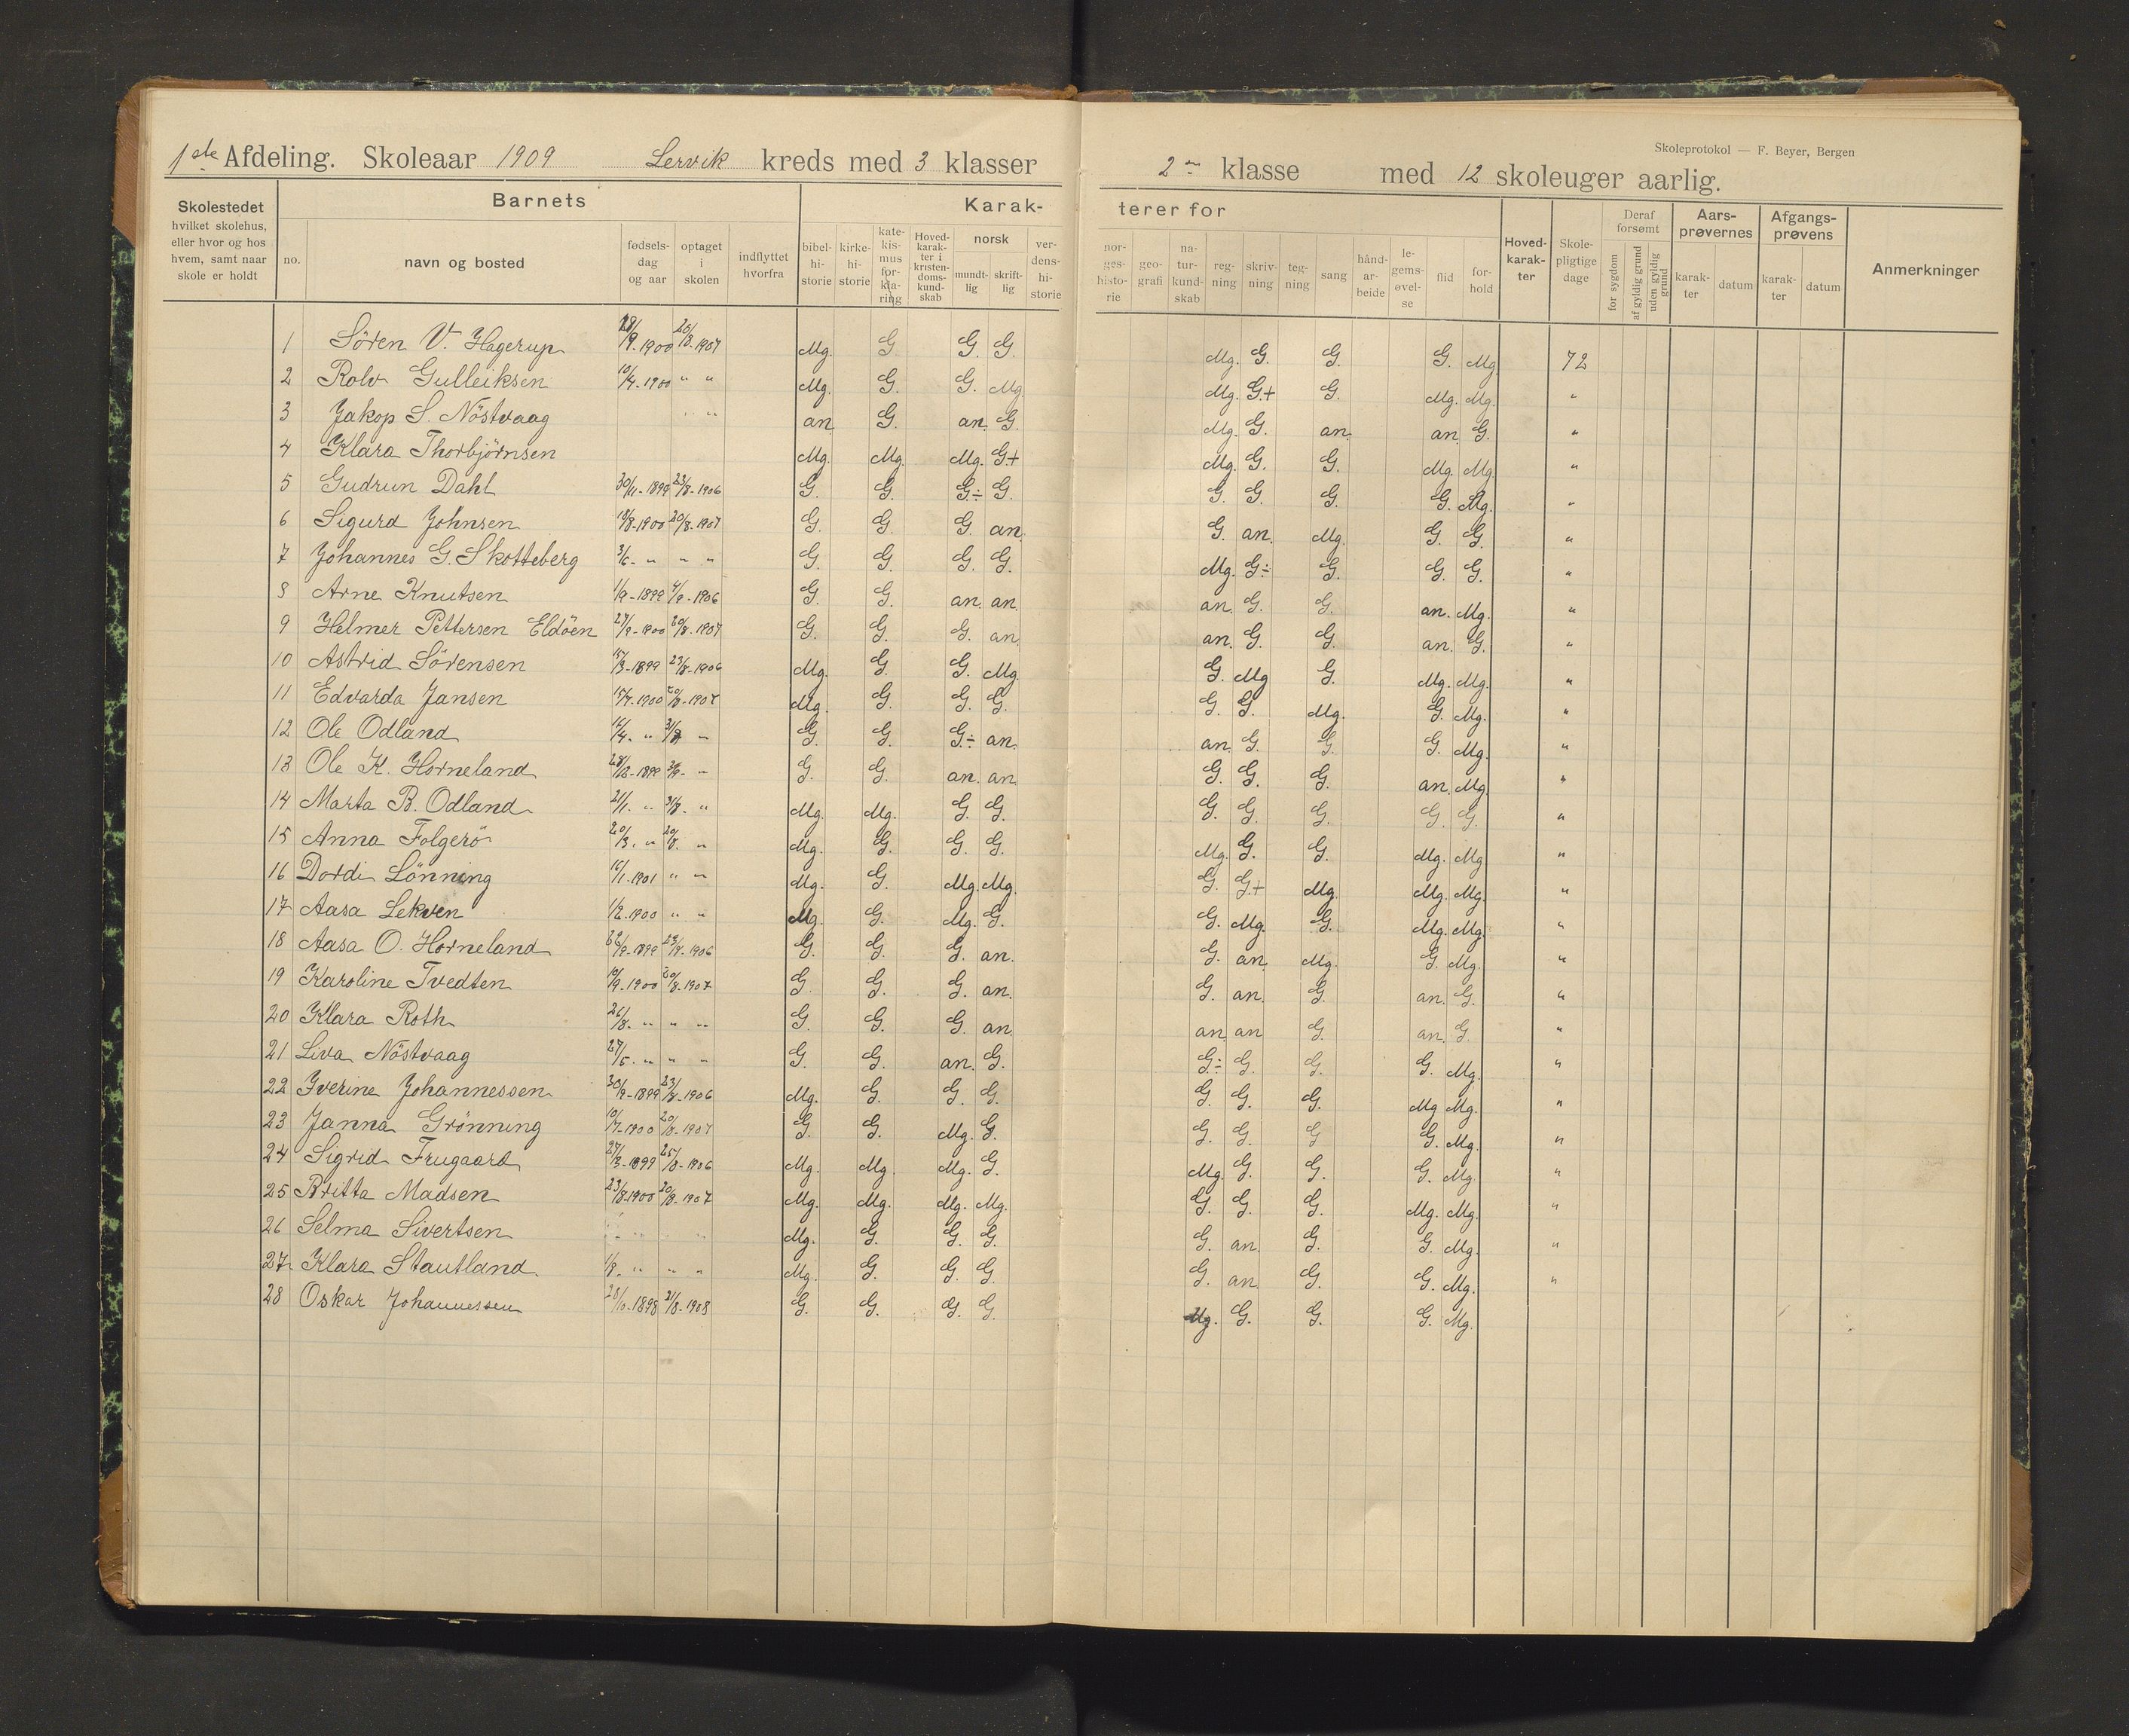 1ste Afdeling. Skoleaar 1909 Lervik kreds med 3 klasser
Skoleprotokol — F. Beyer, Bergen
2en klasse med 12 skoleuger aarlig.
Skolestedet hvilket skolehus, eller hvor og hos hvem, samt naar skole er holdt
Barnets
no. navn og bosted fødsels-dag og aar optaget i skolen indflyttet hvorfra
Karak-
bibel-hi-storie kirke-hi-storie kate-kis-mus for-kla-ring Hoved-karak-ter i kristen-doms-kund-skab norsk mundt-lig skrift-lig ver-dens-hi-storie
terer for
nor-ges-histo-rie geo-grafi na-tur-kund-skab reg-ning skriv-ning teg-ning sang hånd-ar-beide le-gems-øvel-se flid for-hold
Hoved-karak-ter Skole-pligtige dage Deraf forsømt for sygdom af gyldig grund uden gyldig grund Aars-prøvernes karak-ter datum Afgangs-prøvens karak-ter datum Anmerkninger
1 Sören V. Hagerup 28/9-1900 20/8-1907 Mg. G G. G. Mg. G. G. G. Mg 72
2 Rolv Gulleiksen 10/4-1900 " " Mg. G. G. Mg. Mg. G+ G. Mg. Mg. "
3 Jakop S. Nöstvaag " " an G. an. G. Mg. G. an. an. G. "
4 Klara Thorbjörnsen Mg. Mg. Mg. G+ Mg. G. G. Mg. Mg. "
5 Gudrun Dahl 30/11-1899 23/8-1906 G. G. G÷ G. G. G. G. G. Mg. "
6 Sigurd Johnsen 18/8-1900 20/8-1907 G. G. G. an. G. an. Mg. G. G. "
7 Johannes G. Skotteberg 3/6- " " " G. G. G. G. Mg. G÷ G. G. G. "
8 Arne Knutsen 1/9-1899 4/9-1906 G. G. an. an. an. G. G. an. Mg. "
9 Helmer Pettersen Eldöen 27/9-1900 20/8-1907 G. G. G. an. an. G. G. an. G. "
10 Astrid Sörensen 15/3-1899 23/8-1906 Mg. G. G. Mg. G. Mg G. Mg. Mg. "
11 Edvarda Jansen 15/4-1900 20/8-1907 Mg. G. G. G. G. G. Mg. G. Mg. "
12 Ole Odland G. G. G÷ an. an. G. G. G. Mg. "
13 Ole K. Horneland G. G. an. an. G. G. G. an. Mg. "
14 Marta B. Odland 21/1. " 31/8. " Mg. Mg. G. G. G. G. G. G. G. "
15 Anna Folgerö 20/3. " 20/8. " Mg. G. G. G. Mg. G. G. Mg. Mg "
16 Dordi Lönning 1901 " " Mg. G. Mg. Mg. G. G+ Mg. Mg. Mg. "
17 Aasa Lekven 1/2-1900 " " Mg. G. Mg. G. G. Mg. G. Mg. Mg. "
18 Aasa O. Horneland 22/9-1899 23/8-1906 G. G. G. an. G. an. Mg. G. Mg. "
19 Karoline Tvedten 10/9-1900 20/8-1907 G. G. G. an. G. an. G. an. G. "
20 Klara Roth 26/8. " " " G. G. G. an. an. an G. an. G. "
21 Liva Nöstvaag 27/5. " " " G. G. an. G. G÷ G. G. G. Mg. "
22 Iverine Johannessen 30/9-1899 23/8-1906 Mg. G. G. G. G. G. G. Mg Mg. "
23 Janna Grönning 10/7-1900 20/8-1907 G. G. Mg. G. G. G. G G. Mg. "
24 Sigrid Frugaard 27/3-1899 25/8-1906 Mg. Mg. Mg. G. Mg. G. G. G. Mg. "
25 Britta Madsen 23/8-1900 20/8-1907 Mg. Mg. Mg. Mg. G. G. G. Mg. Mg. "
26 Selma Sivertsen Mg. G. G. G. G. an. G. G. Mg. "
27 Klara Stautland. 1/8. " " " Mg. G. G. G. G. an. G. G. Mg. "
28 Oskar Johannessen 28/10-1898 21/8-1908 G. G. G. G. Mg. G. G. G. Mg.